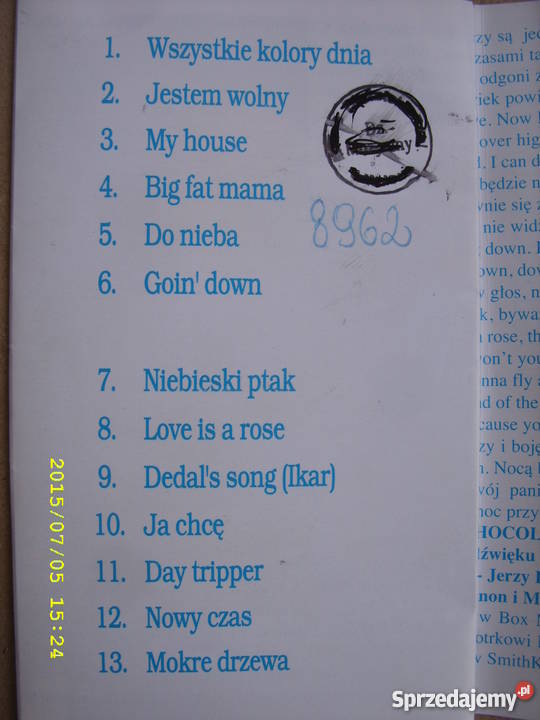 1. Wszystkie kolory dnia
2. Jestem wolny
3. My house
4. Big fat mama
5. Do nieba
6. Goin' down
7. Niebieski ptak
8. Love is a rose
9. Dedal's song (Ikar)
10. Ja chcę
11. Day tripper
12. Nowy czas
13. Mokre drzewa
8962
zy są jed
zasami ta
odgoni z
iek powi
e. Now I
over hig
l. I can d
będzie n
wnie się z
nie widz
down. I
own, dov
głos, n
k, bywa
rose, th
on't you
nna fly a
nd of the
cause yo
zy i boję
n. Nocą
wój pani
noc przy
HOCOL
dźwięku
- Jerzy
non i M
w Box M
otrkowi
w SmithK
2015/07/05 15:24
Sprzedajemy.pl